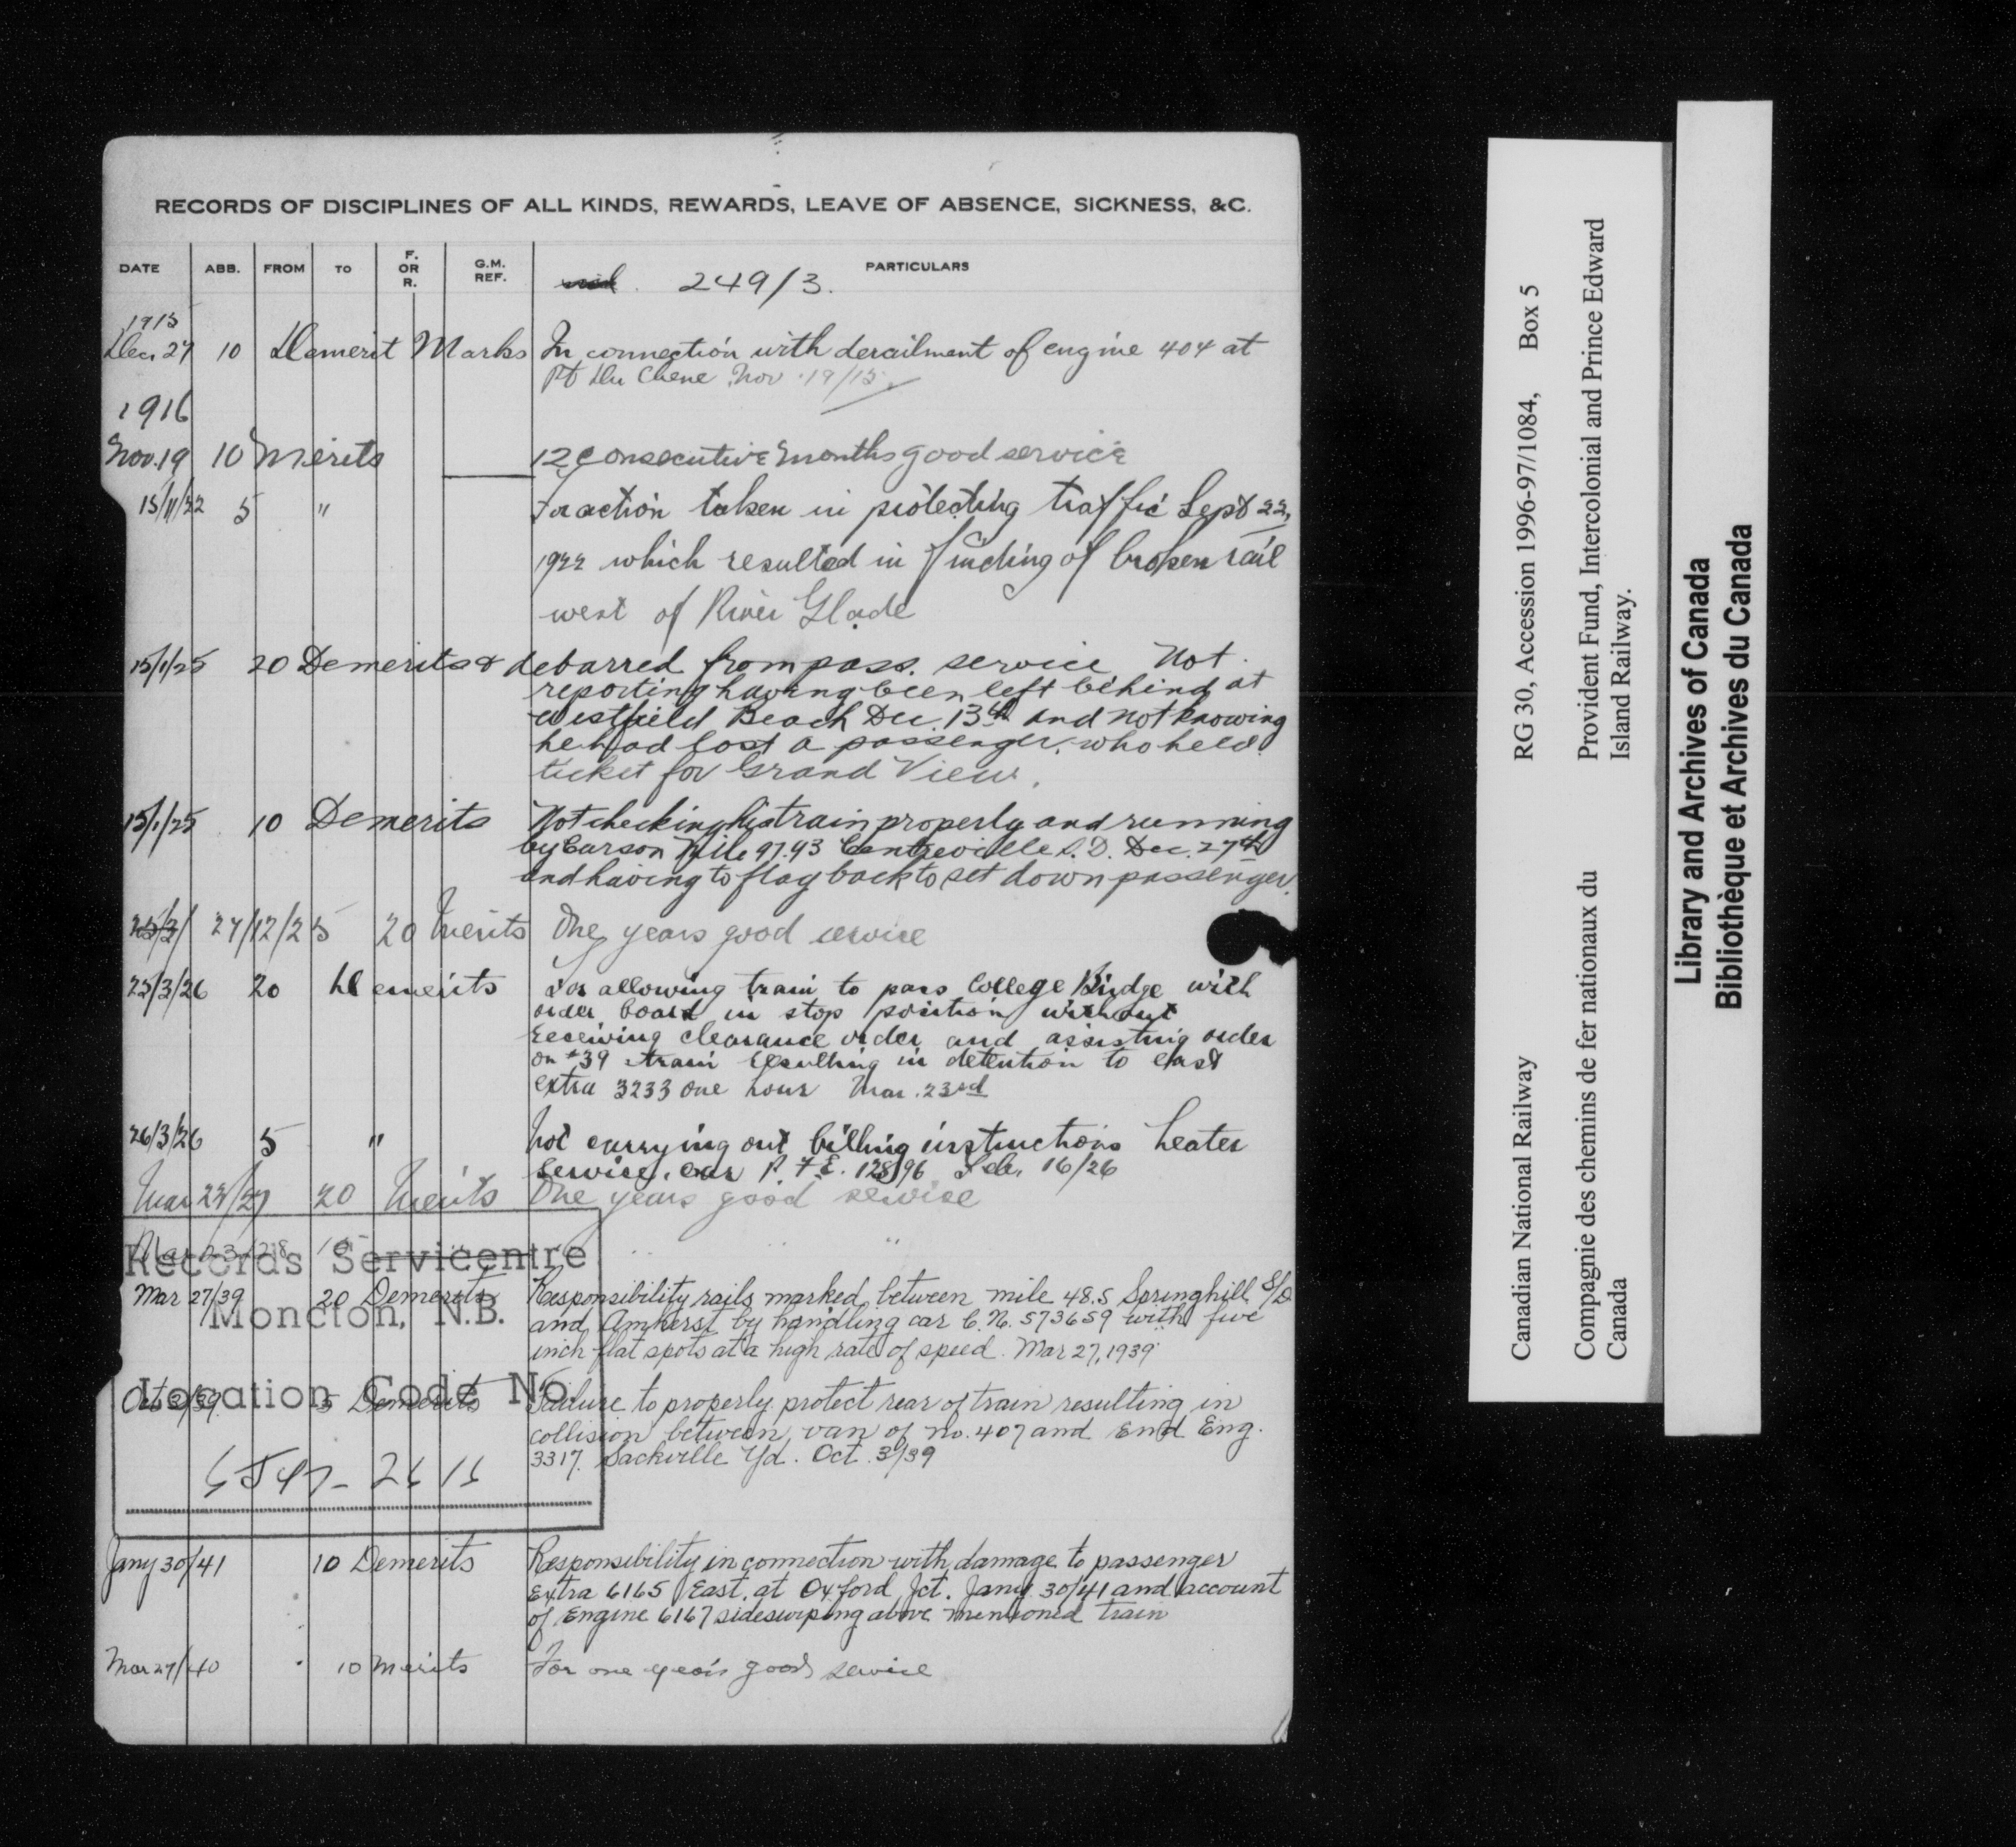 RECORDS OF DISCIPLINES OF ALL KINDS, REWARDS, LEAVE OF ABSENCE, SICKNESS, &C.
DATE ABB. FROM TO F. OR R. G.M. REF. PARTICULARS
249/3.
1915
Dec. 27 10 Demerit Marks In connection with derailment of engine 404 at
Pt Du Chene Nov. 19/15.
1916
Nov. 19 10 Merits 12 Consecutive Months good service
15/11/22 5 " For action taken in protecting traffic Sept 22,
1922 which resulted in finding of broken rail
west of River Glade
15/1/25 20 Demerits & debarred from pass. service Not
reporting having been left behind at
Westfield Beach Dec. 13th and not knowing
he had lost a passenger, who held
ticket for Grand View.
15/1/25 10 Demerits Not checking his train properly and running
by Carson Mile 97.93 Centreville S.D. Dec. 27th
and having to flag back to set down passenger.
25/3/ 27/12/25 20 Merits One years good service
25/3/26 20 Demerits For allowing train to pass College Bridge with
order board in stop position without
receiving clearance order and assisting order
on #39 train resulting in detention to east
extra 3233 one hour Mar. 23rd
26/3/26 5 " Not carrying out billing instructions heater
service, car P.F.E. 12896 Feb. 16/26
Mar 23/27 20 Merits One years good service
Mar 23/28 10 " " " "
Mar 27/39 20 Demerits Responsibility rails marked between mile 48.5 Springhill S/D
and Amherst by handling car C.N. 573659 with five
inch flat spots at a high rate of speed. Mar 27, 1939
Oct 3/39 5 Demerits Failure to properly protect rear of train resulting in
collision between van of no. 407 and End Eng.
3317. Sackville Yd. Oct. 3/39
Records Servicentre
Moncton, N.B.
Location Code No.
Jany 30/41 10 Demerits Responsibility in connection with damage to passenger
Extra 6165 East, at Oxford Jct. Jany 30/41 and account
of Engine 6167 sideswiping above mentioned train
Mar 27/40 10 merits For one year's good service
Canadian National Railway RG 30, Accession 1996-97/1084, Box 5
Compagnie des chemins de fer nationaux du Provident Fund, Intercolonial and Prince Edward
Canada Island Railway.
Library and Archives of Canada
Bibliothèque et Archives du Canada